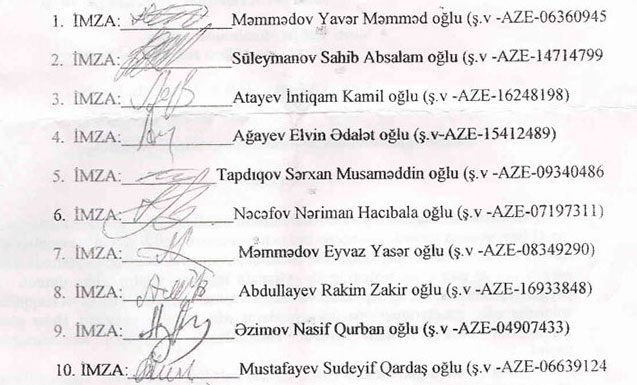 1. İMZA: Məmmədov Yavər Məmməd oğlu (ş.v -AZE-06360945
2. İMZA: Süleymanov Sahib Absalam oğlu (ş.v -AZE-14714799
3. İMZA: Atayev İntiqam Kamil oğlu (ş.v -AZE-16248198)
4. İMZA: Ağayev Elvin Ədalət oğlu (ş.v-AZE-15412489)
5. İMZA: Tapdıqov Sərxan Musaməddin oğlu (ş.v -AZE-09340486
6. İMZA: Nəcəfov Nəriman Hacıbala oğlu (ş.v -AZE-07197311)
7. İMZA: Məmmədov Eyvaz Yasər oğlu (ş.v -AZE-08349290)
8. İMZA: Abdullayev Rakim Zakir oğlu (ş.v -AZE-16933848)
9. İMZA: Əzimov Nasif Qurban oğlu (ş.v -AZE-04907433)
10. İMZA: Mustafayev Sudeyif Qardaş oğlu (ş.v -AZE-06639124